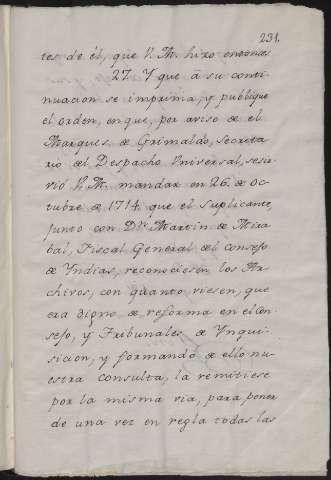 231.
tes de él, que V. M. hizo entonces
27. Y que à su conti-
nuacion se imprima, y publique
el orden, en que, por aviso de el
Marques de Grimaldo, Secreta-
rio del Despacho Universal, se sir-
vió V. M. mandar en 26. de Oc-
tubre de 1714. que el Suplicante,
junto con Dn. Martin de Mira-
bal, Fiscal General del Consejo
de Yndias, reconociesen los Ar-
chivos, con quanto viesen, que
era digno de reforma en el Con-
sejo, y Tribunales de Ynqui-
sicion, y formando de ello nu-
estra consulta, la remitiese
por la misma via, para poner
de una vez en regla todas las